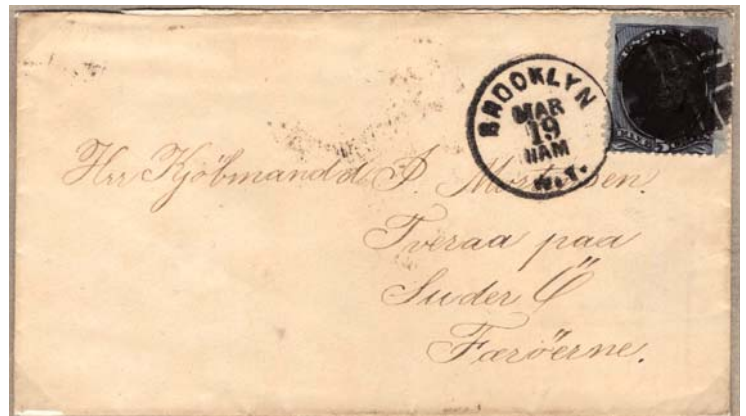 BROOKLYN
MAR
19
11AM
N.Y.
Herr Kjöbmand P. Mortensen.
Tveraa paa
Suder Ö
Færöerne.